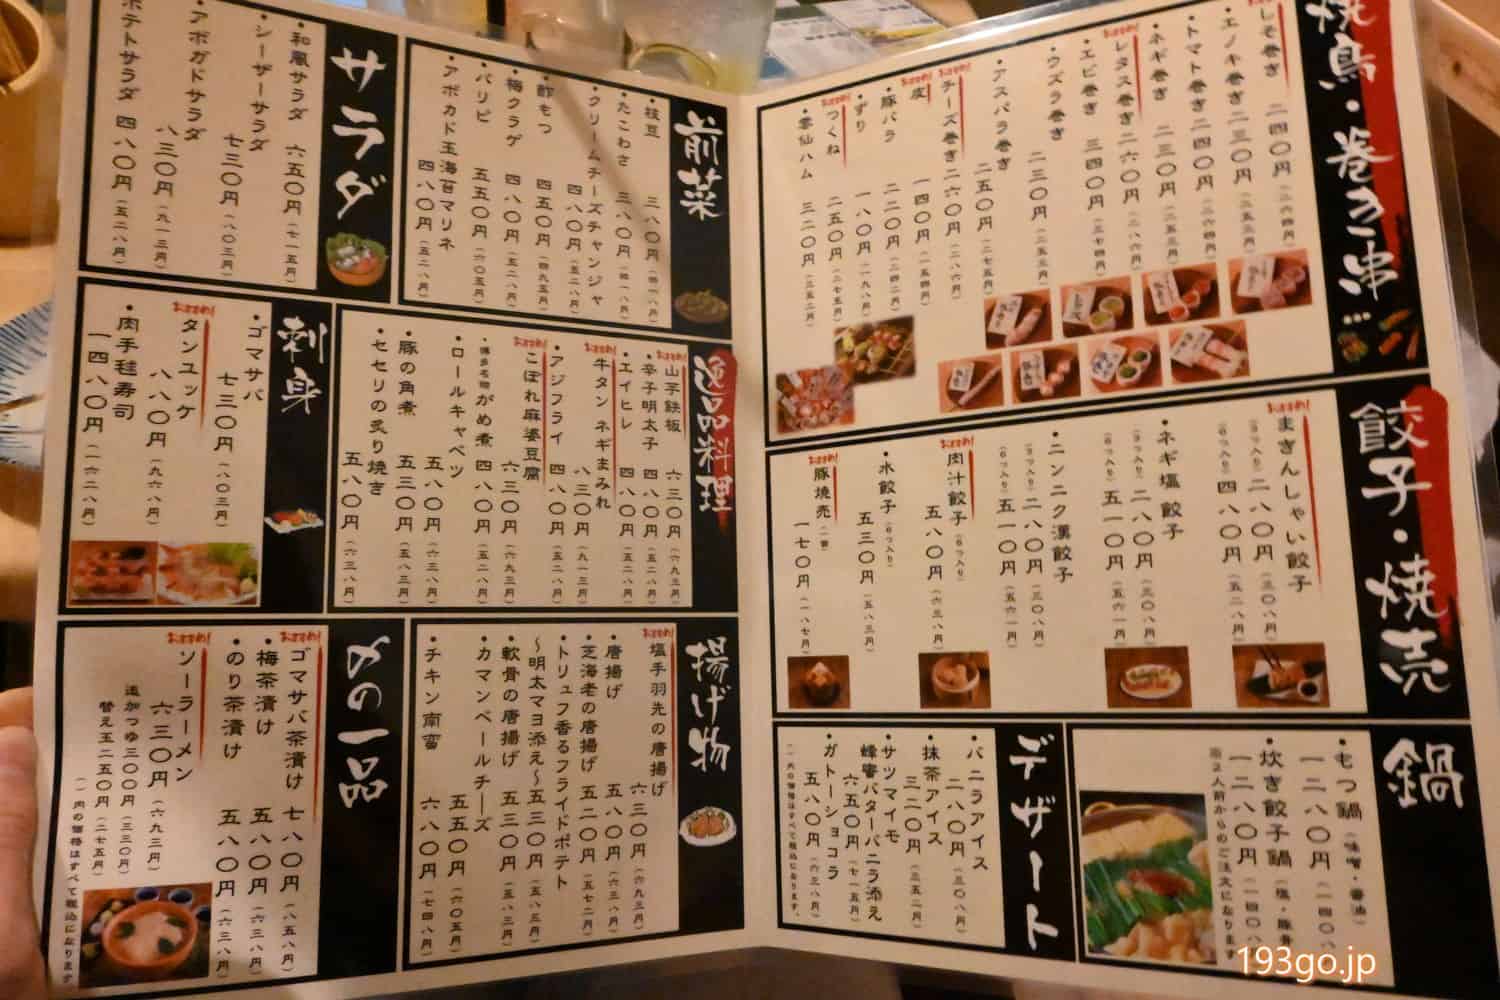 焼鳥・巻き串…
おすすめ!
しそ巻き 二四〇円(二六四円)
エノキ巻き 二三〇円(二五三円)
トマト巻き 二四〇円(二六四円)
ネギ巻き 二三〇円(二五三円)
おすすめ!
レタス巻き 二六〇円(二八六円)
エビ巻き 三四〇円(三七四円)
ウズラ巻き 二三〇円(二五三円)
アスパラ巻き 二五〇円(二七五円)
おすすめ!
チーズ巻き 二六〇円(二八六円)
おすすめ!
皮 一四〇円(一五四円)
豚バラ 二二〇円(二四二円)
ずり 一八〇円(一九八円)
おすすめ!
つくね 二五〇円(二七五円)
雲仙ハム 三二〇円(三五二円)
餃子・焼売
おすすめ!
まぎんしゃい餃子
(3つ入り)二八〇円(三〇八円)
(6つ入り)四八〇円(五二八円)
ネギ塩餃子
(3つ入り)二八〇円(三〇八円)
(6つ入り)五一〇円(五六一円)
ニンニク漢餃子
(3つ入り)二八〇円(三〇八円)
(6つ入り)五一〇円(五六一円)
おすすめ!
肉汁餃子(6つ入り)
五八〇円(六三八円)
水餃子(6つ入り)
五三〇円(五八三円)
おすすめ!
豚焼売(一個)
一七〇円(一八七円)
鍋
もつ鍋(味噌・醤油)
一二八〇円(一四〇
炊き餃子鍋(塩・豚骨
一二八〇円(一四〇
※2人前からのご注文になります
デザート
バニラアイス 二八〇円(三〇八円)
抹茶アイス 三二〇円(三五二円)
サツマイモ
蜂蜜バターバニラ添え 六五〇円(七一五円)
ガトーショコラ 五八〇円(六三八円)
( )内の価格はすべて税込になります。
前菜
枝豆 三八〇円(四一八円)
たこわさ 三八〇円(四一八円)
クリームチーズチャンジャ 四八〇円(五二八円)
酢もつ 四五〇円(四九五円)
梅クラゲ 四八〇円(五二八円)
バリピ 五五〇円(六〇五円)
アボカド王海苔マリネ 四八〇円(五二八円)
サラダ
和風サラダ 六五〇円(七一五円)
シーザーサラダ 七三〇円(八〇三円)
アボガドサラダ 八三〇円(九一三円)
ポテトサラダ 四八〇円(五二八円)
逸品料理
おすすめ!
山芋鉄板 六三〇円(六九三円)
辛子明太子 四八〇円(五二八円)
エイヒレ 四八〇円(五二八円)
おすすめ!
牛タン ネギまみれ 八三〇円(九一三円)
アジフライ 四八〇円(五二八円)
おすすめ!
こぼれ麻婆豆腐 六三〇円(六九三円)
博多名物がめ煮 四八〇円(五二八円)
ロールキャベツ 五八〇円(六三八円)
豚の角煮 五三〇円(五八三円)
セセリの炙り焼き 五八〇円(六三八円)
刺身
ゴマサバ 七三〇円(八〇三円)
おすすめ!
タンユッケ 八八〇円(九六八円)
肉手毬寿司 一四八〇円(一六二八円)
揚げ物
おすすめ!
塩手羽先の唐揚げ 六三〇円(六九三円)
唐揚げ 五八〇円(六三八円)
芝海老の唐揚げ 五二〇円(五七二円)
トリュフ香るフライドポテト
〜明太マヨ添え〜 五三〇円(五八三円)
軟骨の唐揚げ 五三〇円(五八三円)
カマンベールチーズ 五五〇円(六〇五円)
チキン南蛮 六八〇円(七四八円)
〆の一品
おすすめ!
ゴマサバ茶漬け 七八〇円(八五八円)
梅茶漬け 五八〇円(六三八円)
のり茶漬け 五八〇円(六三八円)
おすすめ!
ソーラーメン 六三〇円(六九三円)
追がつゆ三〇〇円(三三〇円)
替え玉二五〇円(二七五円)
( )内の価格はすべて税込になります
193go.jp